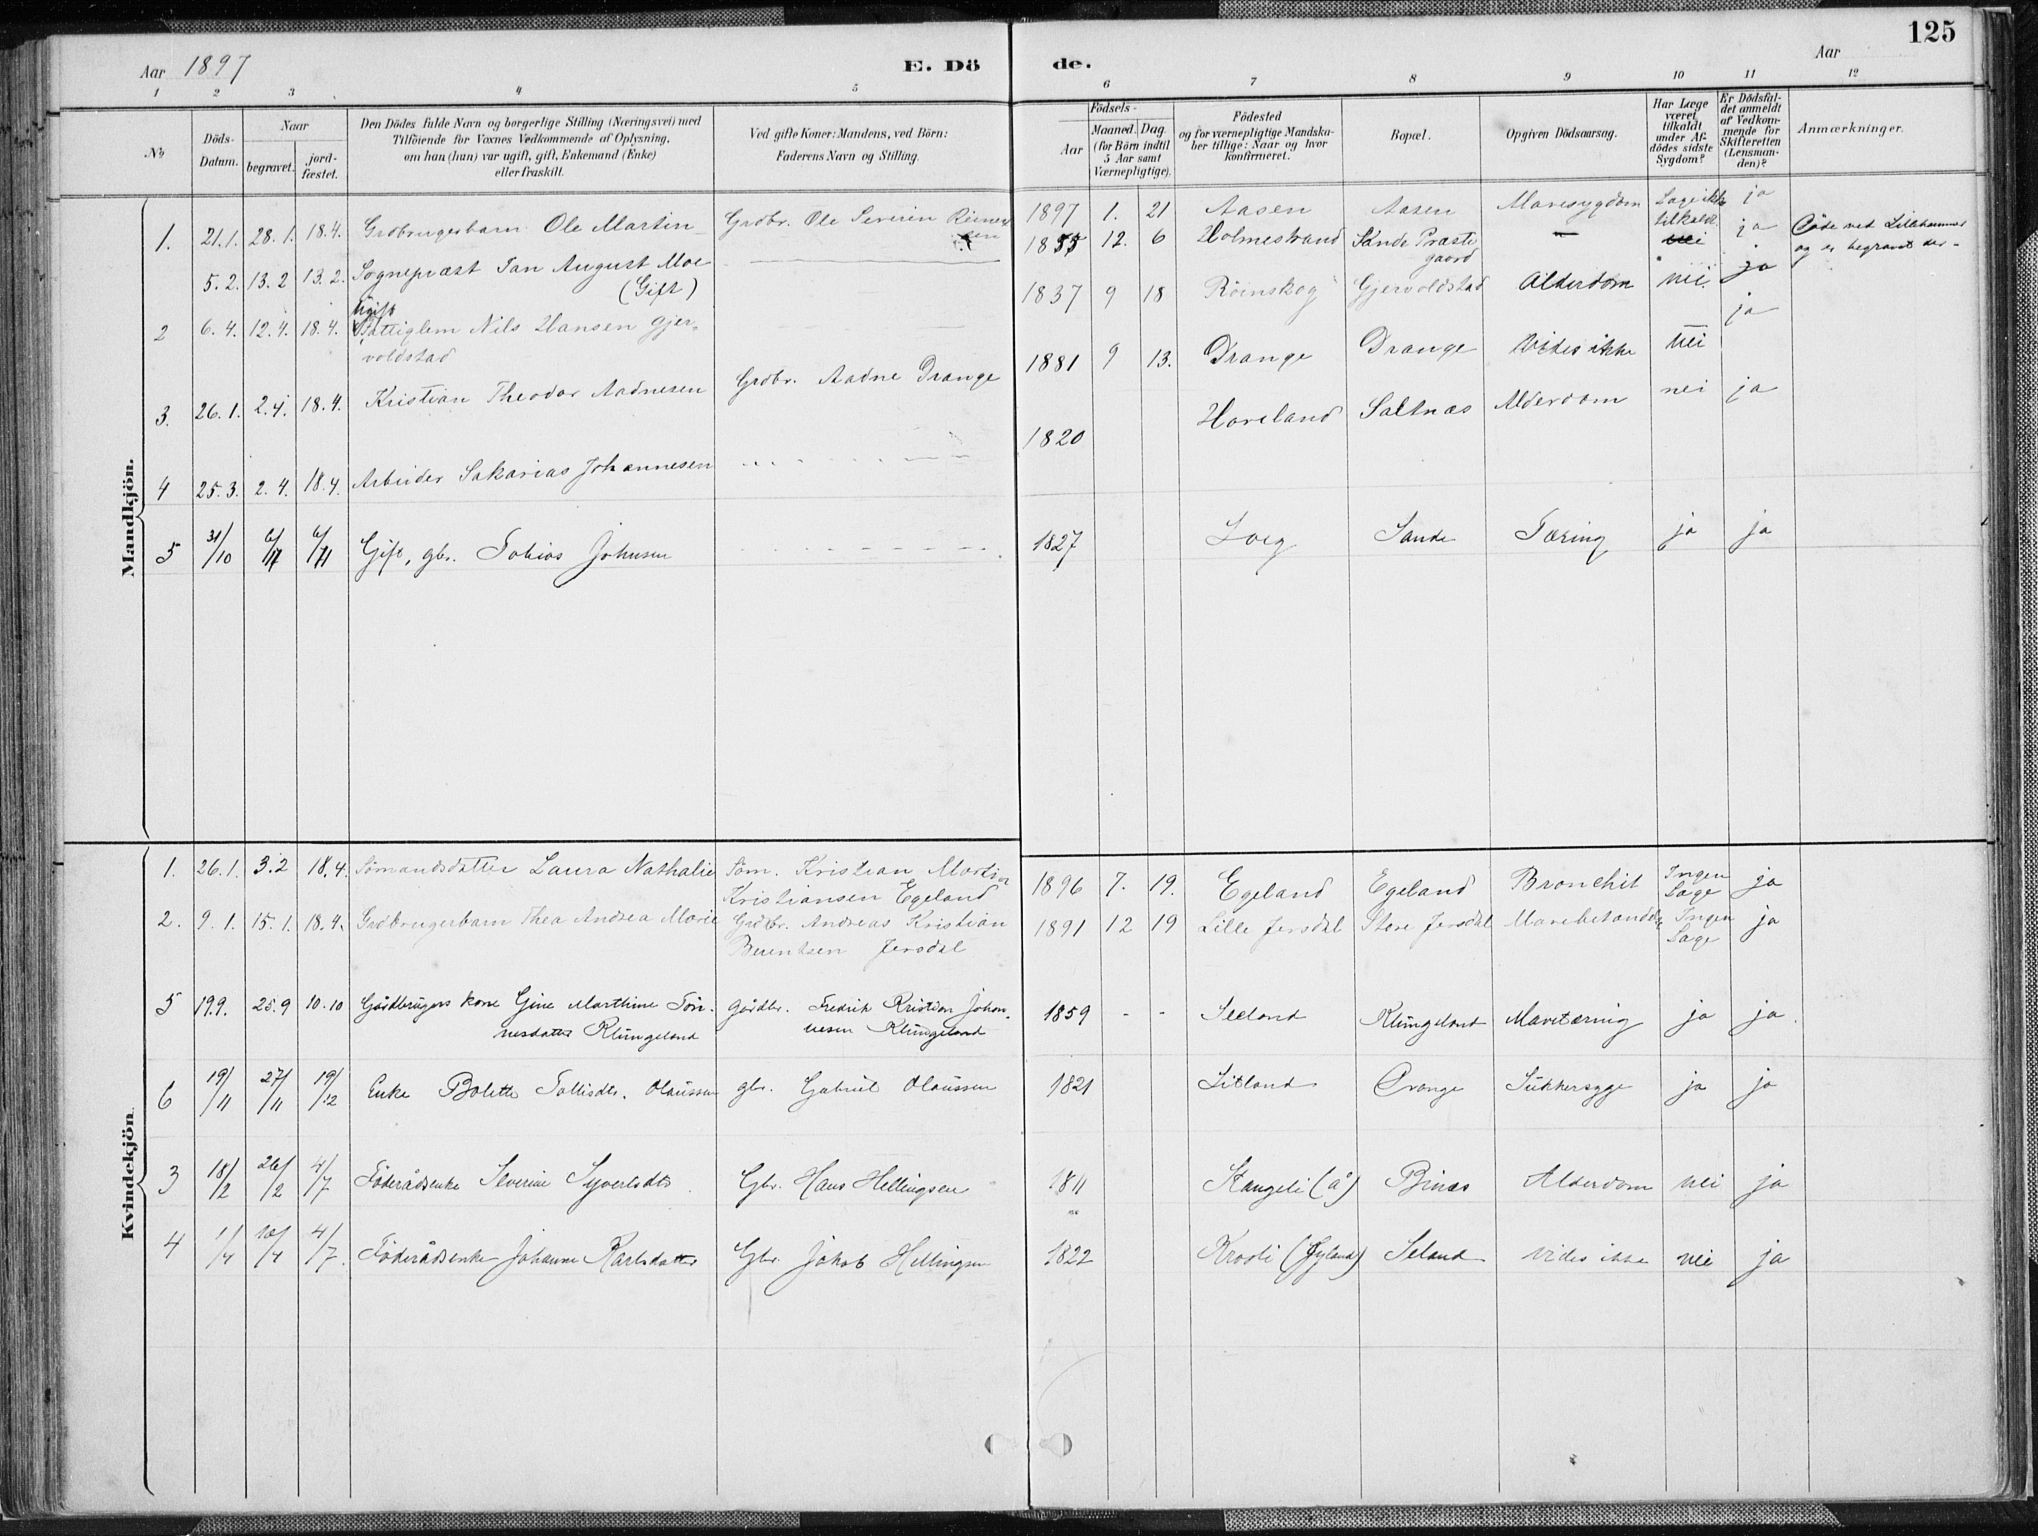 125
Aar 1897 E. Dö de. Aar
1 2 3 4 5 6 7 8 9 10 11 12
No Döds-Datum. Naar begravet. jord-fæstet.
Den Dödes fulde Navn og borgerlige Stilling (Næringsvei) med
Tilföiende for Voxnes Vedkommende af Oplysning,
om han (hun) var ugift, gift, Enkemand (Enke)
eller fraskilt.
Ved gifte Koner: Mandens, ved Börn:
Faderens Navn og Stilling.
Födsels-
Aar Maaned. Dag.
(for Börn indtil
5 Aar samt
Værnepligtige).
Födested
og for værnepligtige Mandska-
ber tillige: Naar og hvor
konfirmeret.
Bopæl.
Opgiven Dödsaarsag.
Har Læge
været
tilkaldt
under Af-
dödes sidste
Sygdom?
Er Dödsfal-
det anmeldt
af Vedkom-
mende for
Skifteretten
(Lensman-
den)?
Anmærkninger.
Mandkjön.
1. 21.1. 28.1. 18.4. Grdbrugerbarn Ole Martin Grdbr. Ole Severin 1897 1. 21 Aasen Aasen Mavesygdom Læge ikke tilkaldt ja
5.2. 13.2 13.2. Sognepræst Jan August Moe (Gift) 1855 12. 6 Holmestrand Sande Præstegaard — nei ja Döde ved Lillehammer
og er begravet der-
2 6.4. 12.4. 18.4. Ugift Fattiglem Nils Hansen Gjer-
voldstad 1837 9 18 Röinskog Gjervoldstad Alderdom nei. ja
3. 26.1. 2.4. 18.4. Kristian Theodor Aadnesen Grdbr. Aadne Drange 1881 9 13. Drange Drange Vides ikke nei ja
4 25.3. 2.4. 18.4. Arbeider Sakarias Johannesen 1820 Haveland Saltnæs Alderdom nei ja
5 31/10 6/11 6/11 Gift, gbr. Tobias Johnsen 1827 Loeg Sande Tæring ja ja
Kvindekjön.
1. 26.1. 3.2 18.4. Sömandsdatter Laura Nathalie Söm. Kristian Martin
Kristiansen Egeland 1896 7. 19. Egeland Egeland Bronchit Ingen Læge ja
2. 9.1. 15.1. 18.4. Grdbrugerbarn Thea Andrea Marie Grdbr. Andreas Kristian
Berentsen Jersdal 1891 12 19 Lille Jersdal Store Jersdal Mavebetændelse Ingen Læge ja
5 19.9. 25.9 10.10 Gårdbrugers kone Gine Marthine Tön-
nesdatter Klungeland gårdbr. Fredrik Kristian Johan-
nesen Klungeland 1859 - - Seland Klungeland Mavetæring ja ja.
6 19/11 27/11 19/12 Enke Bolette Tallisdtr. Olaussen gbr. Gabriel Olaussen 1821 Litland Drange Sukkersyge ja ja
3 18/2 26/2 4/7 Föderådsenke Severine Syvertsdtr Gbr. Hans Hellingsen 1811 Stangeli (å) Binæs Alderdom nei ja
4 1/4 10/4 4/7. Föderådsenke Johanne Karlsdatter Gbr. Jakob Hellingsen 1822 Kroðli (Gyland) Seland vides ikke nei ja